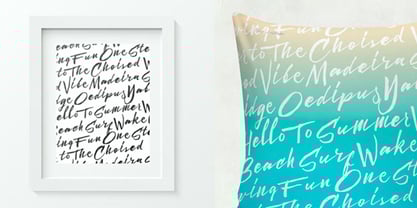 Beach Surf
ving Fun One Ste
to The Choised
od Vibe Madeira S
dge Oedipus Yac
Hello To Summer
Beach Surf Wake
ving Fun One St
to The Choised
ving Fun One Ste
to The Choised W
od Vibe Madeira S
dge Oedipus Yak
Hello To Summer
Beach Surf Wake
ving Fun One
to The Choised